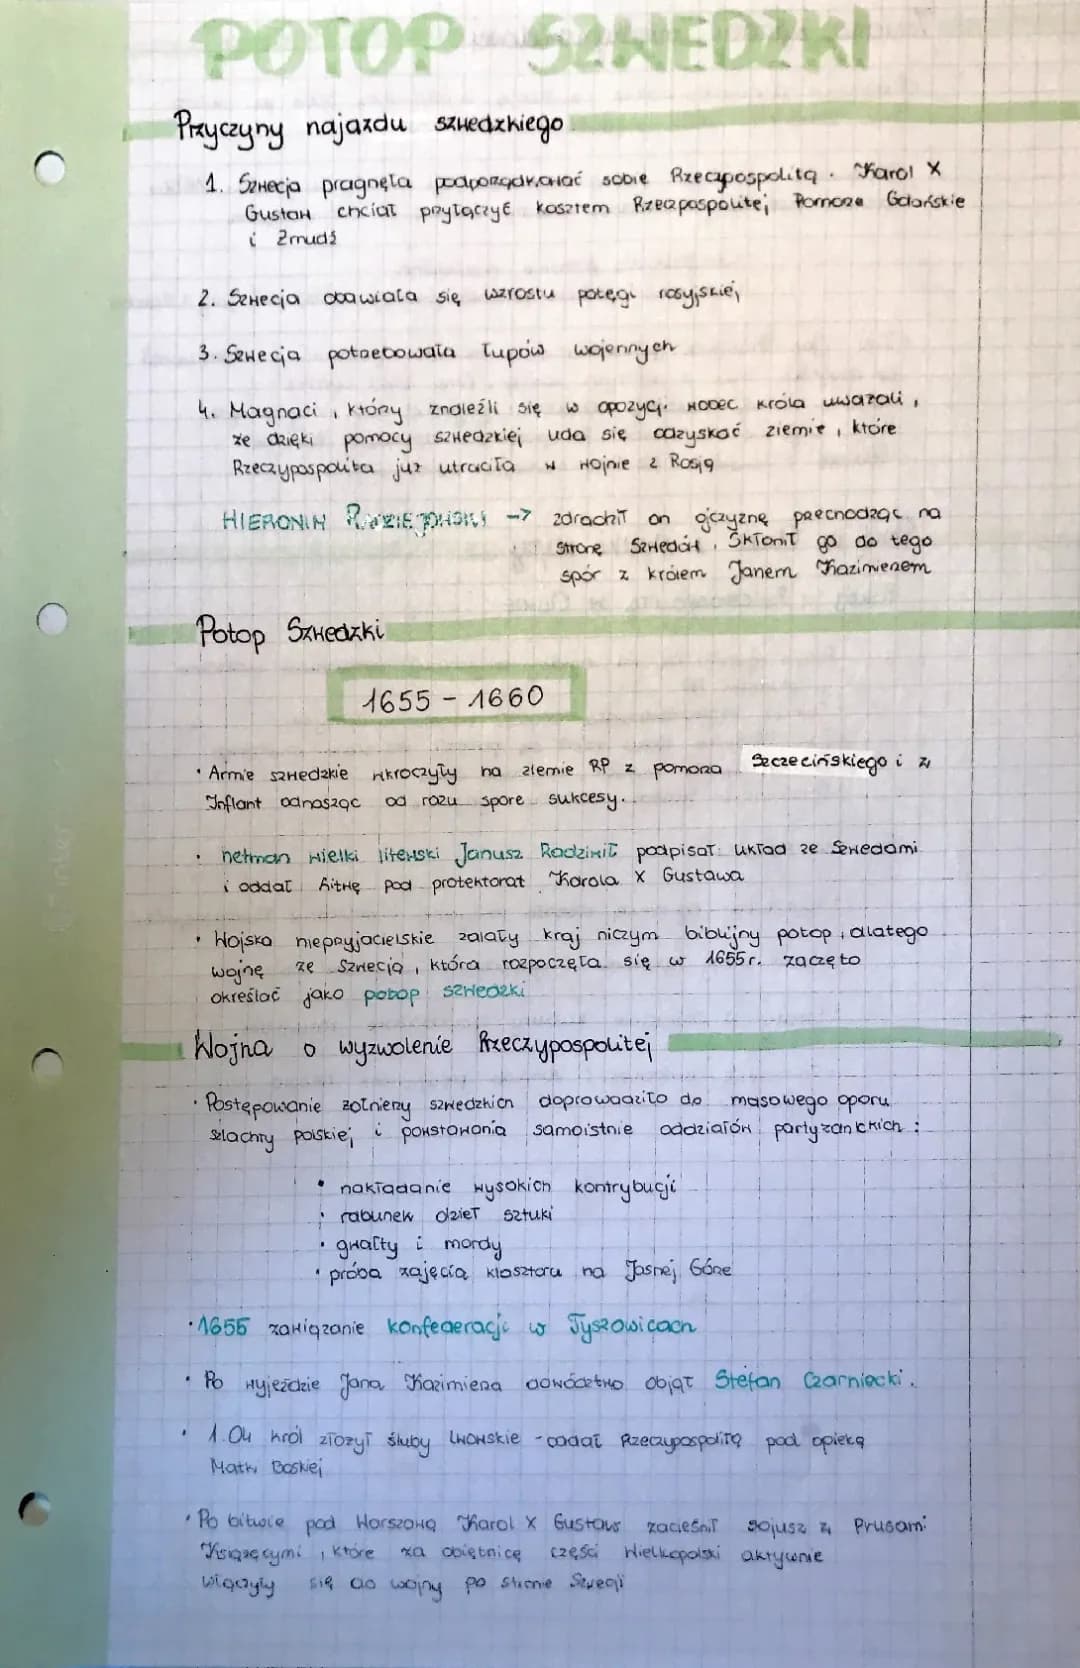 POTOP SZWEDZKI
Przyczyny najazdu szwedzkiego
1. Szwecja pragnęła podporządkować sobie Rzeczpospolitą. Karol X
Gustaw chciał przyłączyć kosztem Rzeczpospolitej Pomorze Gdańskie
i Żmudź
2. Szwecja obawiała się wzrostu potęgi rosyjskiej
3. Szwecja potrzebowała łupów wojennych
4. Magnaci, którzy znaleźli się w opozycji wobec króla uważali,
że dzięki pomocy szwedzkiej uda się odzyskać ziemie, które
Rzeczypospolita już utraciła w wojnie z Rosją
HIERONIM RADZIEJOWSKI -> zdradził on ojczyznę przechodząc na
stronę Szwedów. Skłonił go do tego
spór z królem Janem Kazimierzem
Potop Szwedzki
1655 - 1660
• Armie szwedzkie wkroczyły na ziemie RP z pomorza Szczecińskiego i z
Inflant odnosząc od razu spore sukcesy.
• hetman wielki litewski Janusz Radziwił podpisał układ ze Szwedami
i oddał Litwę pod protektorat Karola X Gustawa
• Wojska nieprzyjacielskie zalały kraj niczym biblijny potop, dlatego
wojnę ze Szwecją, która rozpoczęła się w 1655r. zaczęto
określać jako potop szwedzki
Wojna o wyzwolenie Rzeczypospolitej
• Postępowanie żołnierzy szwedzkich doprowadziło do masowego oporu
szlachty polskiej i powstawania samoistnie oddziałów partyzanckich:
• nakładanie wysokich kontrybucji
• rabunek dzieł sztuki
• gwałty i mordy
• próba zajęcia klasztoru na Jasnej Górze
• 1655 zawiązanie konfederacji w Tyszowicach
• Po wyjeździe Jana Kazimierza dowództwo objął Stefan Czarniecki.
• 1.04 król złożył śluby lwowskie - oddał Rzeczypospolitą pod opiekę
Matki Boskiej
• Po bitwie pod Warszawą Karol X Gustaw zacieśnił sojusz z Prusami
Książęcymi, które za obietnicę części Wielkopolski aktywnie
włączyły się do wojny po stronie Szwecji